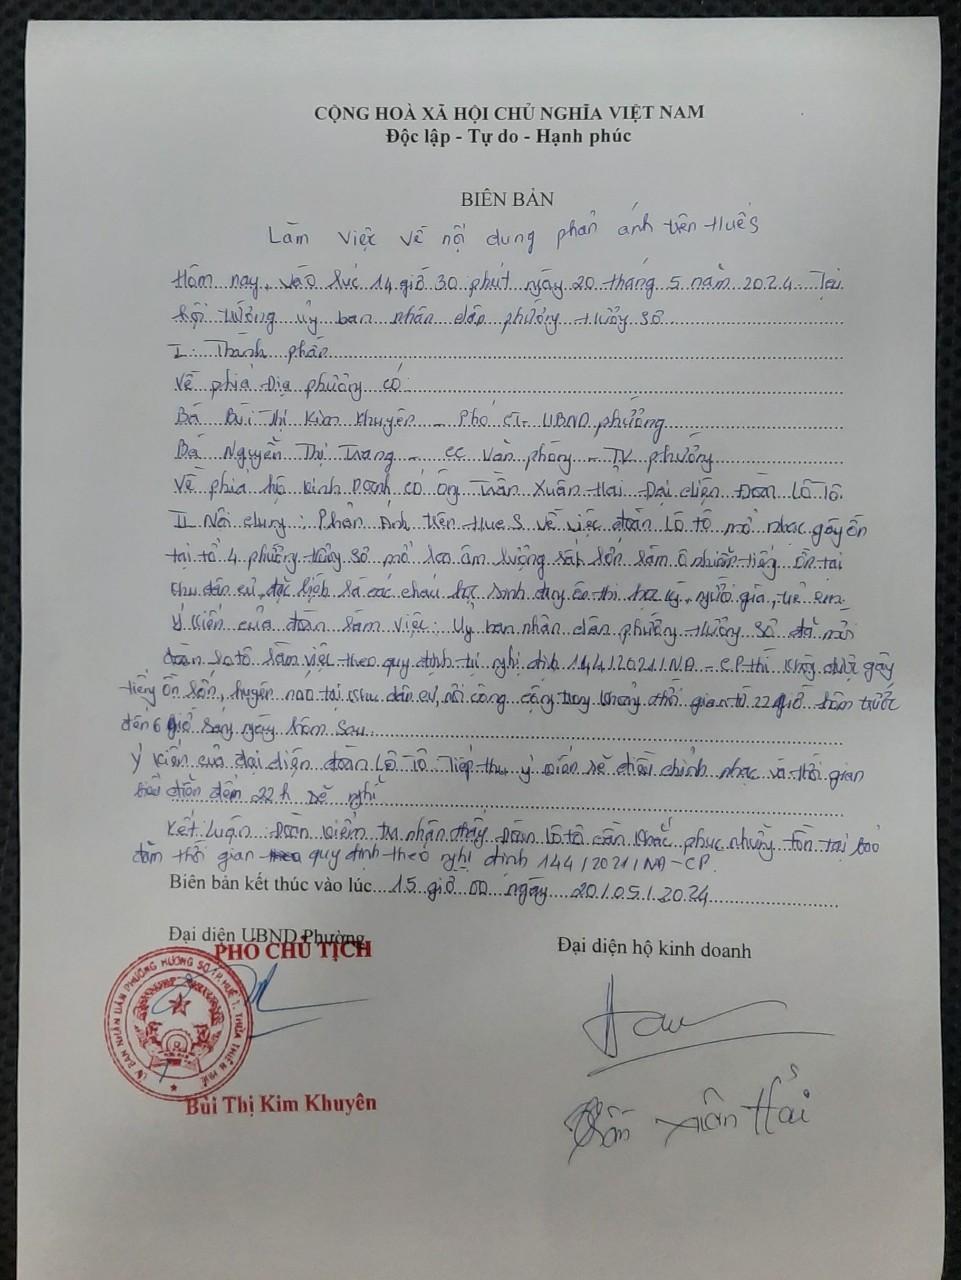 CỘNG HOÀ XÃ HỘI CHỦ NGHĨA VIỆT NAM
Độc lập - Tự do - Hạnh phúc
BIÊN BẢN
Làm việc về nội dung phản ánh trên Hue S
Hôm nay, vào lúc 14 giờ 30 phút ngày 20 tháng 5 năm 2024 Tại
hội trường ủy ban nhân dân phường Hương Sơ
I: Thành phần
Về phía Địa phương có:
Bà Bùi Thị Kim Khuyên - Phó CT- UBND phường
Bà Nguyễn Thị Trang - CC Văn phòng - TK phường
Về phía hộ kinh Doanh có ông Trần Xuân Hải Đại diện Đoàn Lô Tô.
II Nội dung: Phản Ánh trên Hue S về việc đoàn Lô tô mở nhạc gây ồn
tại tổ 4 phường Hương Sơ mở loa âm lượng rất lớn làm ô nhiễm tiếng ồn tại
khu dân cư, đặc biệt là các cháu học sinh đang ôn thi học kỳ, người già, trẻ em.
Ý kiến của đoàn làm việc: Ủy ban nhân dân phường Hương Sơ đã mời
đoàn lô tô làm việc theo quy định tại nghị định 144/2021/NĐ-CP thì không được gây
tiếng ồn lớn, huyên náo tại khu dân cư, nơi công cộng trong khoảng thời gian từ 22 giờ hôm trước
đến 6 giờ sáng ngày hôm sau.
Ý kiến của đại diện đoàn Lô Tô Tiếp thu ý kiến sẽ điều chỉnh nhạc và thời gian
biểu diễn đến 22h sẽ nghỉ
Kết luận: Đoàn kiểm tra nhận thấy Đoàn lô tô cần khắc phục những tồn tại bảo
đảm thời gian theo quy định theo nghị định 144/2021/NĐ-CP.
Biên bản kết thúc vào lúc 15 giờ 00 ngày 20/05/2024
Đại diện UBND Phường
Đại diện hộ kinh doanh
PHÓ CHỦ TỊCH
ỦY BAN NHÂN DÂN PHƯỜNG HƯƠNG SƠ TP. HUẾ T. THỪA THIÊN HUẾ
Bùi Thị Kim Khuyên
Trần Xuân Hải